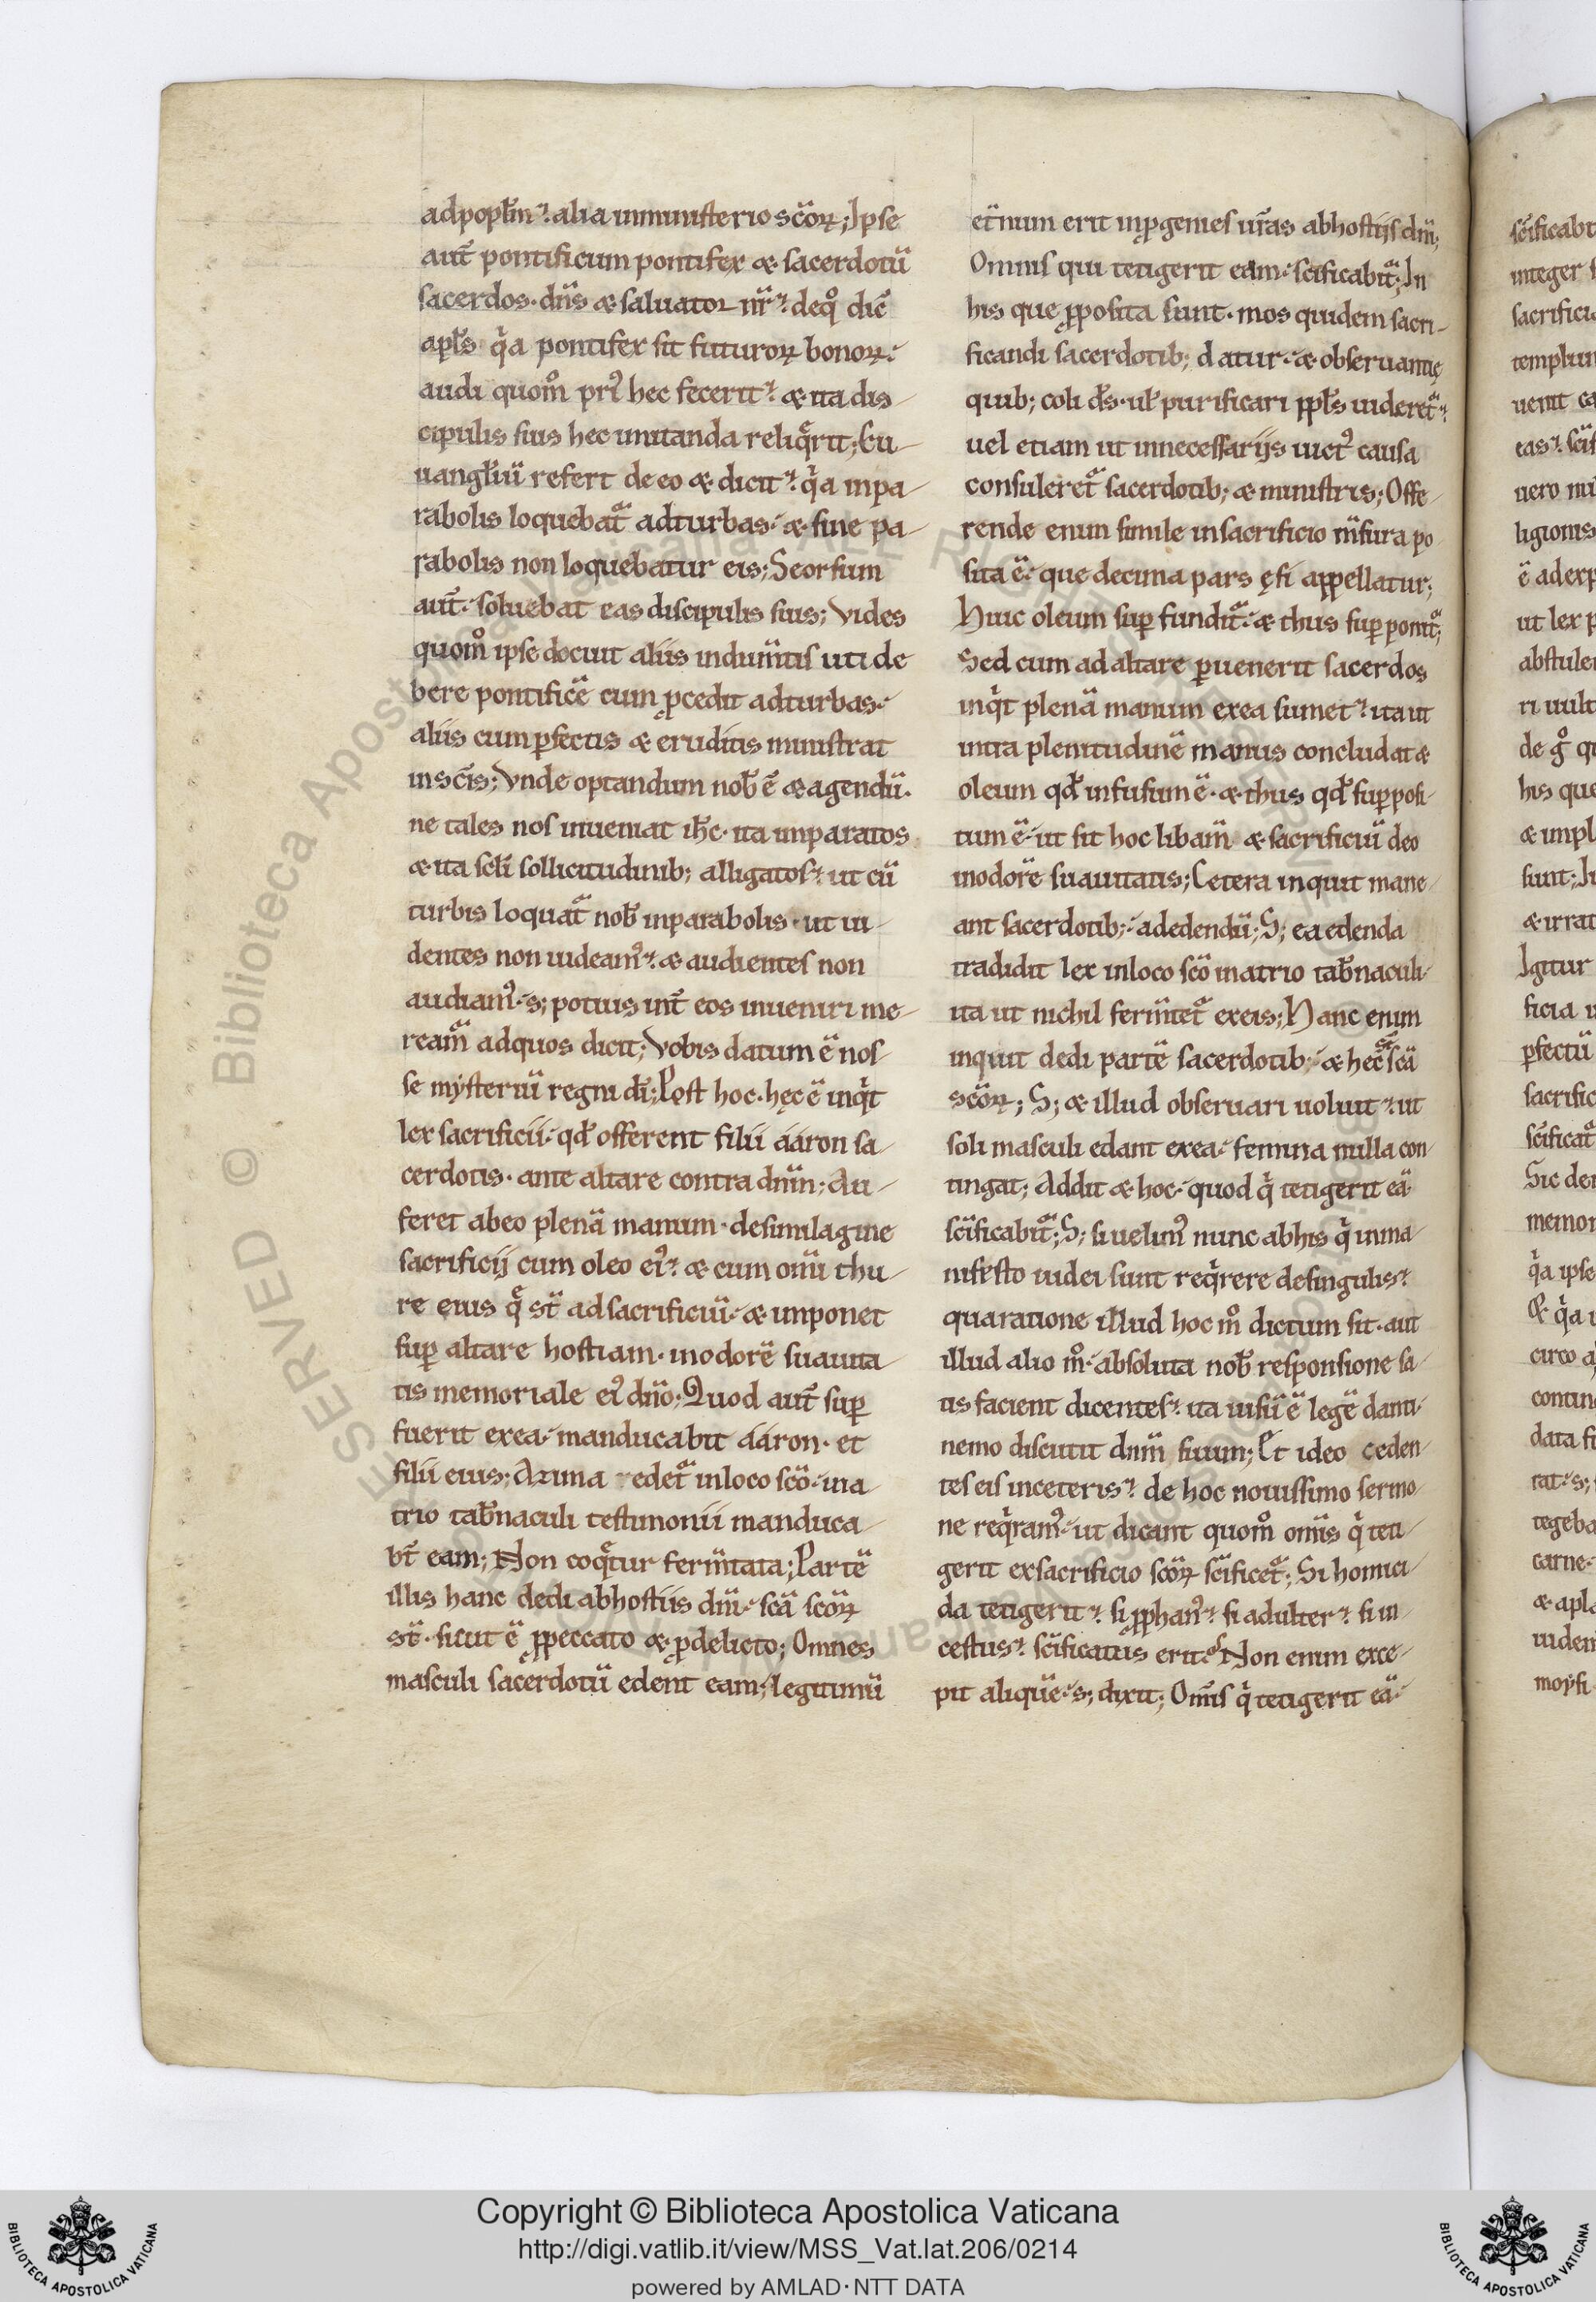 ad popl̄m. alia in ministerio sc̄oꝝ; Ipse
aut̄ pontificum pontifex & sacerdotū
sacerdos. dn̄s & saluator nr̄. de qͦ dic̄
apl̄s qͥa pontifex sit futuroꝝ bonoꝝ.
audi quom̊ priꝰ hec fecerit. & ita dis-
cipulis suis hec imitanda reliqͣrit; Eu-
uangl̄iū refert de eo & dicit. qͥa in pa-
rabolis loquebat̄ ad turbas. & sine pa-
rabolis non loquebatur eis; Seorsum
aut̄. soluebat eas discipulis suis; Vides
quom̊ ipse docuit aliis indum̄tis uti de
bere pontificē cum ꝓcedit ad turbas.
aliis cum ꝑfectis & eruditis ministrat
in sc̄is; Vnde optandum nob̄ ē & agendū.
ne tales nos inueniat ih̄c. ita imparatos
& ita sc̄li sollicitudinib; alligatos. ut cū
turbis loquat̄ nob̄ in parabolis. ut ui-
dentes non uideamꝰ. & audientes non
audiamꝰ. s; potius int̄ eos inueniri me-
ream̄ ad quos dicit; Vobis datum ē nos-
se mẏsteriū regni dī; Post hoc. hęc ē inqͥt
lex sacrificii. qđ offerent filii ááron sa-
cerdotis. ante altare contra dn̄m; Au-
feret ab eo plenā manum. de similagine
sacrificij cum oleo eiꝰ. & cum om̄i thu-
re eius qͤ st̄ ad sacrificiū. & imponet
suꝑ altare hostiam. in odorē suauita-
tis memoriale eiꝰ dn̄o; Quod aut̄ suꝑ
fuerit ex ea. manducabit ááron. et
filii eius; Azima edet̄ in loco sc̄o. in a-
trio tab̄naculi testimonii manduca-
bt̄ eam; Non coqͣtur ferm̄tata; Partē
illis hanc dedi ab hostiis dn̄i. sc̄a sc̄oꝝ
st̄. sicut ē ꝓ peccato & ꝓ delicto; Omnes
masculi sacerdotū edent eam; legitimū
et̄num erit in ꝓgenies ur̄as ab hostijs dn̄i;
Omnis qui tetigerit eam. sc̄ificabit̄; In
his que ꝓposita sunt. mos quidem sacri-
ficandi sacerdotib; datur. & obseruantię
quib; coli d̄s. ul̄ purificari ppl̄s uideret̄.
uel etiam ut in necessarijs uictꝰ causa
consuleret̄ sacerdotib; & ministris; Offe-
rende enim simile in sacrificio m̄sura po
sita ē. que decima pars ęfi appellatur;
Huic oleum suꝑfundit̄. & thus suꝑponit̄;
Sed cum ad altare ꝑuenerit sacerdos
inqͥt plenā manum ex ea sumet. ita ut
intra plenitudinē manus concludat &
oleum qđ infusum ē. & thus qđ suꝑposi-
tum ē. ut sit hoc libam̄ & sacrificiū deo
in odorē suauitatis; Cetera inquit mane-
ant sacerdotib;. ad edendū; S; ea edenda
tradidit lex in loco sc̄o in atrio tab̄naculi.
ita ut nichil ferm̄tet̄ ex eis; Hanc enim
inquit dedi partē sacerdotib;. & hec sc̄a
sc̄oꝝ; S; & illud obseruari uoluit. ut
soli masculi edant ex ea. femina nulla con-
tingat; Addit & hoc. quod qͥ tetigerit eā
sc̄ificabit̄; S; si uelimꝰ nunc ab his qͥ in ma-
nifesto iudei sunt reqͥrere de singulis.
qua ratione illud hoc m̊ dictum sit. aut
illud alio m̊. absoluta nob̄ responsione sa-
tis facient dicentes. ita uisū ē legē danti.
nemo discutit dn̄m suum; Et ideo ceden-
tes eis in ceteris. de hoc nouissimo sermo-
ne reqͥramꝰ. ut dicant quom̊ om̄is qͥ teti-
gerit ex sacrificio sc̄oꝝ sc̄ificet̄; Si homici-
da tetigerit. si ꝓphanꝰ. si adulter. si in-
cestus. sc̄ificatus erit; Non enim exce-
pit aliquē. s; dixit; Om̄is qͥ tetigerit eā.
Copyright © Biblioteca Apostolica Vaticana
http://digi.vatlib.it/view/MSS_Vat.lat.206/0214
powered by AMLAD·NTT DATA
BIBLIOTECA APOSTOLICA VATICANA
BIBLIOTECA APOSTOLICA VATICANA